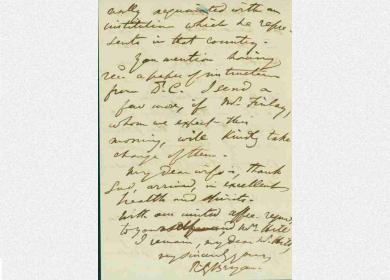 acquainted with an
institution which he repre-
sents in that country.
You mention having
rec'd a paper of instruction
from D.C. I send a
few more, if Mr Finlay,
whom we expect this
morning, will kindly take
charge of them.
My dear wife is, thank
God, arrived, in excellent
health and
With our united affec.
to yourself and Mrs Hill
I remain, my dear Mr Hill
my sincerely yours